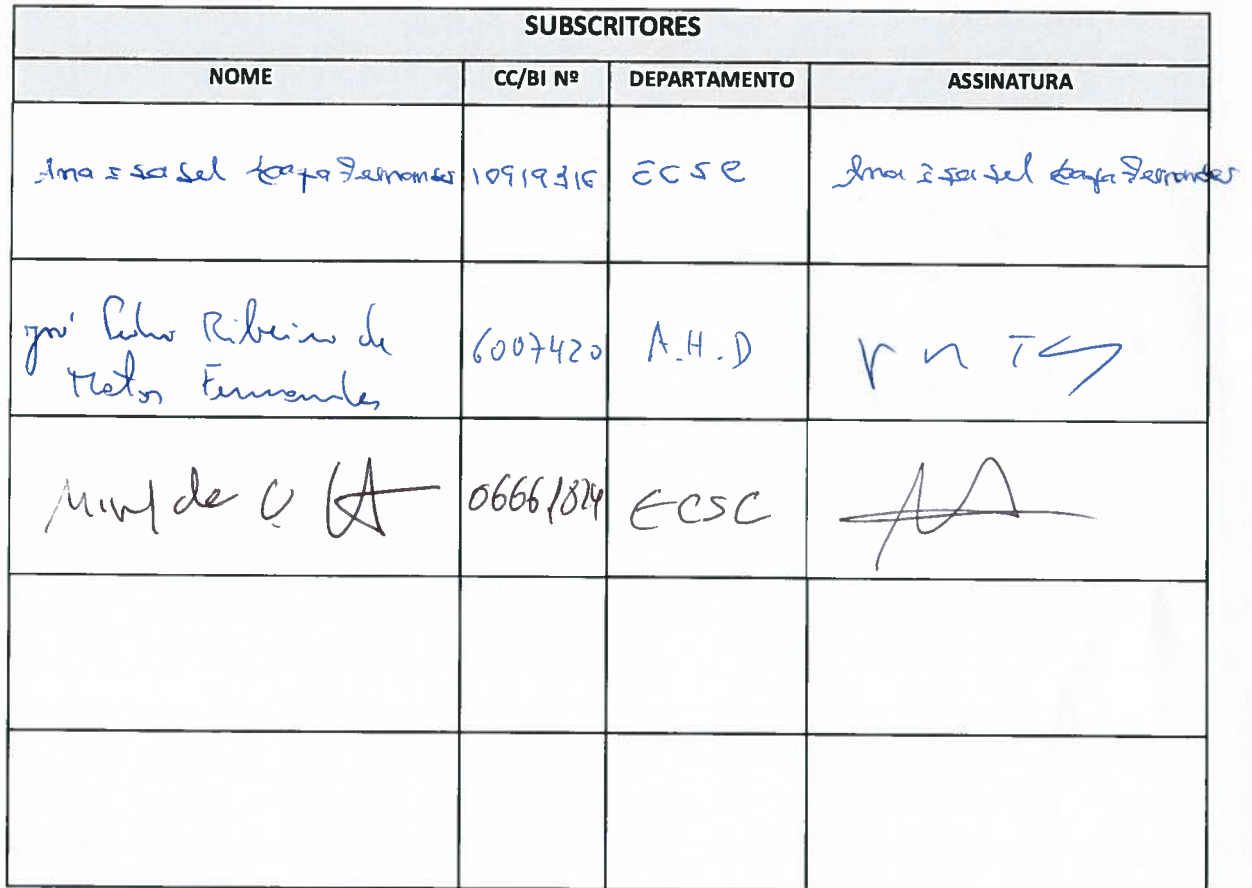 SUBSCRITORES
NOME CC/BI Nº DEPARTAMENTO ASSINATURA
Ana Isabel Fernandes 10919316 ECSC Ana Isabel Fernandes
José Pedro Ribeiro de
Matos Fernandes 6007420 A.H.D
de 06661824 ECSC